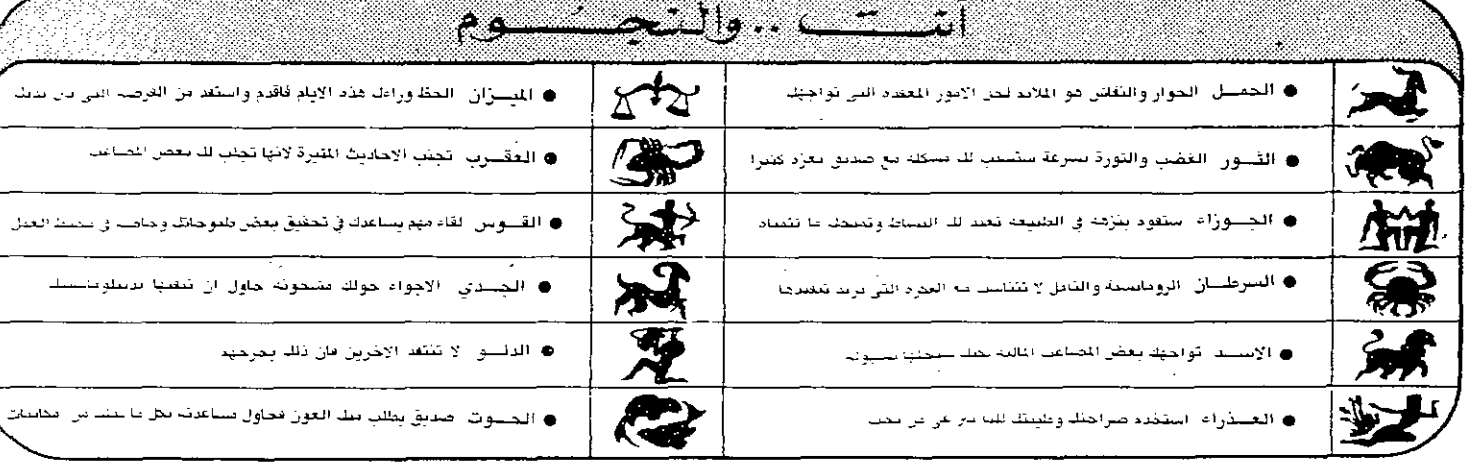 انت .. والنجوم
● الحمل الحوار والنقاش هو الملاذ لحل الامور المعقدة التي تواجهك
● الثور الغضب والثورة بسرعة ستسبب لك مشكلة مع صديق تعزه كثيرا
● الجوزاء ستقوم بنزهة في الطبيعة تعيد لك النشاط وتمنحك ما تتمناه
● السرطان الرومانسية والتامل لا تتناسب مع التي تريد تنفيذها
● الاسد تواجهك بعض المصاعب المالية لكنك ستحلها بسهولة
● العذراء استخدم صراحتك وطيبتك مع من تحب
● الميزان الحظ وراءك هذه الايام فاقدم واستفد من الفرصة التي بين يديك
● العقرب تجنب الاحاديث المثيرة لانها تجلب لك بعض المصاعب
● القوس لقاء مهم يساعدك في تحقيق بعض طموحاتك وخاصة في محيط العمل
● الجدي الاجواء حولك مشحونة حاول ان تنقيها بدبلوماسيتك
● الدلو لا تنتقد الاخرين فان ذلك يجرحهم
● الحوت صديق يطلب منك العون فحاول مساعدته بكل ما عندك من امكانيات